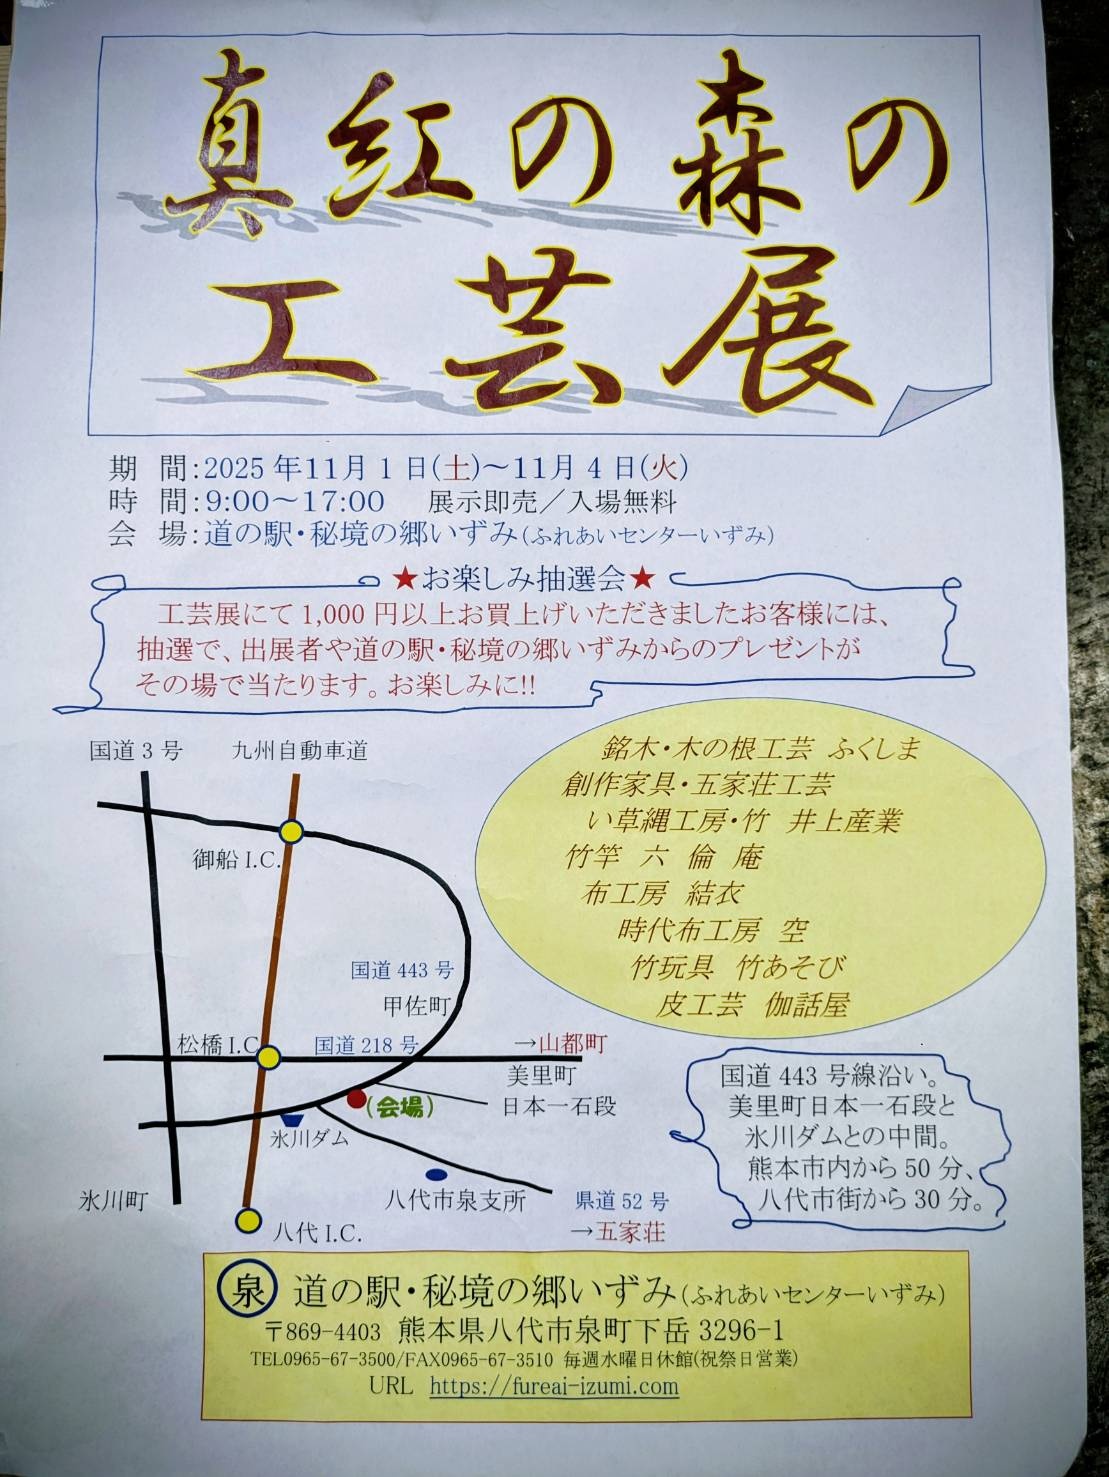 真紅の森の
工芸展
期 間：2025 年11月 1 日(土)～11月 4 日(火)
時 間：9:00～17:00 展示即売／入場無料
会 場：道の駅・秘境の郷いずみ(ふれあいセンターいずみ)
★お楽しみ抽選会★
工芸展にて 1,000 円以上お買上げいただきましたお客様には、
抽選で、出展者や道の駅・秘境の郷いずみからのプレゼントが
その場で当たります。お楽しみに!!
銘木・木の根工芸 ふくしま
創作家具・五家荘工芸
い草縄工房・竹 井上産業
竹竿 六 倫 庵
布工房 結衣
時代布工房 空
竹玩具 竹あそび
皮工芸 伽話屋
国道 3 号 九州自動車道
御船 I.C.
国道 443 号
甲佐町
松橋 I.C
国道 218 号
→山都町
美里町
(会場)
日本一石段
氷川ダム
氷川町
八代市泉支所
県道 52 号
八代 I.C.
→五家荘
国道 443 号線沿い。
美里町日本一石段と
氷川ダムとの中間。
熊本市内から 50 分、
八代市街から 30 分。
泉 道の駅・秘境の郷いずみ(ふれあいセンターいずみ)
〒869-4403 熊本県八代市泉町下岳 3296-1
TEL0965-67-3500/FAX0965-67-3510 毎週水曜日休館(祝祭日営業)
URL https://fureai-izumi.com